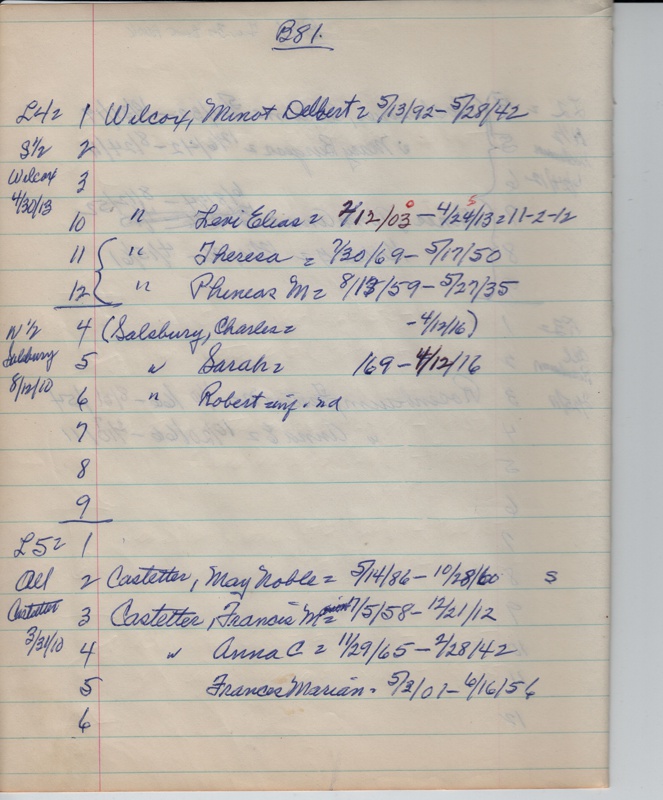 B81.
L42 1 Wilcox, Minot Delbert = 5/13/92 - 5/28/42
S 1/2 2
Wilcox 3
4/30/13
10 " Levi Elias = 2/12/03 - 4/24/13 = 11-2-12
11 " Theresa = 7/30/69 - 5/17/50
12 " Phineas M = 8/13/59 - 5/27/35
N 1/2 4 (Salsbury, Charles = - 4/12/16)
Salsbury 5 " Sarah = 169 - 4/12/16
8/12/10 6 " Robert = inf. nd
7
8
9
L52 1
All 2 Castetter, May Noble = 5/14/86 - 10/28/60 S
Castetter 3 Castetter, Francis M = 7/5/58 - 12/21/12
3/31/10 4 " Anna C = 11/29/65 - 2/28/42
5 Frances Marian - 5/2/01 - 6/16/56
6